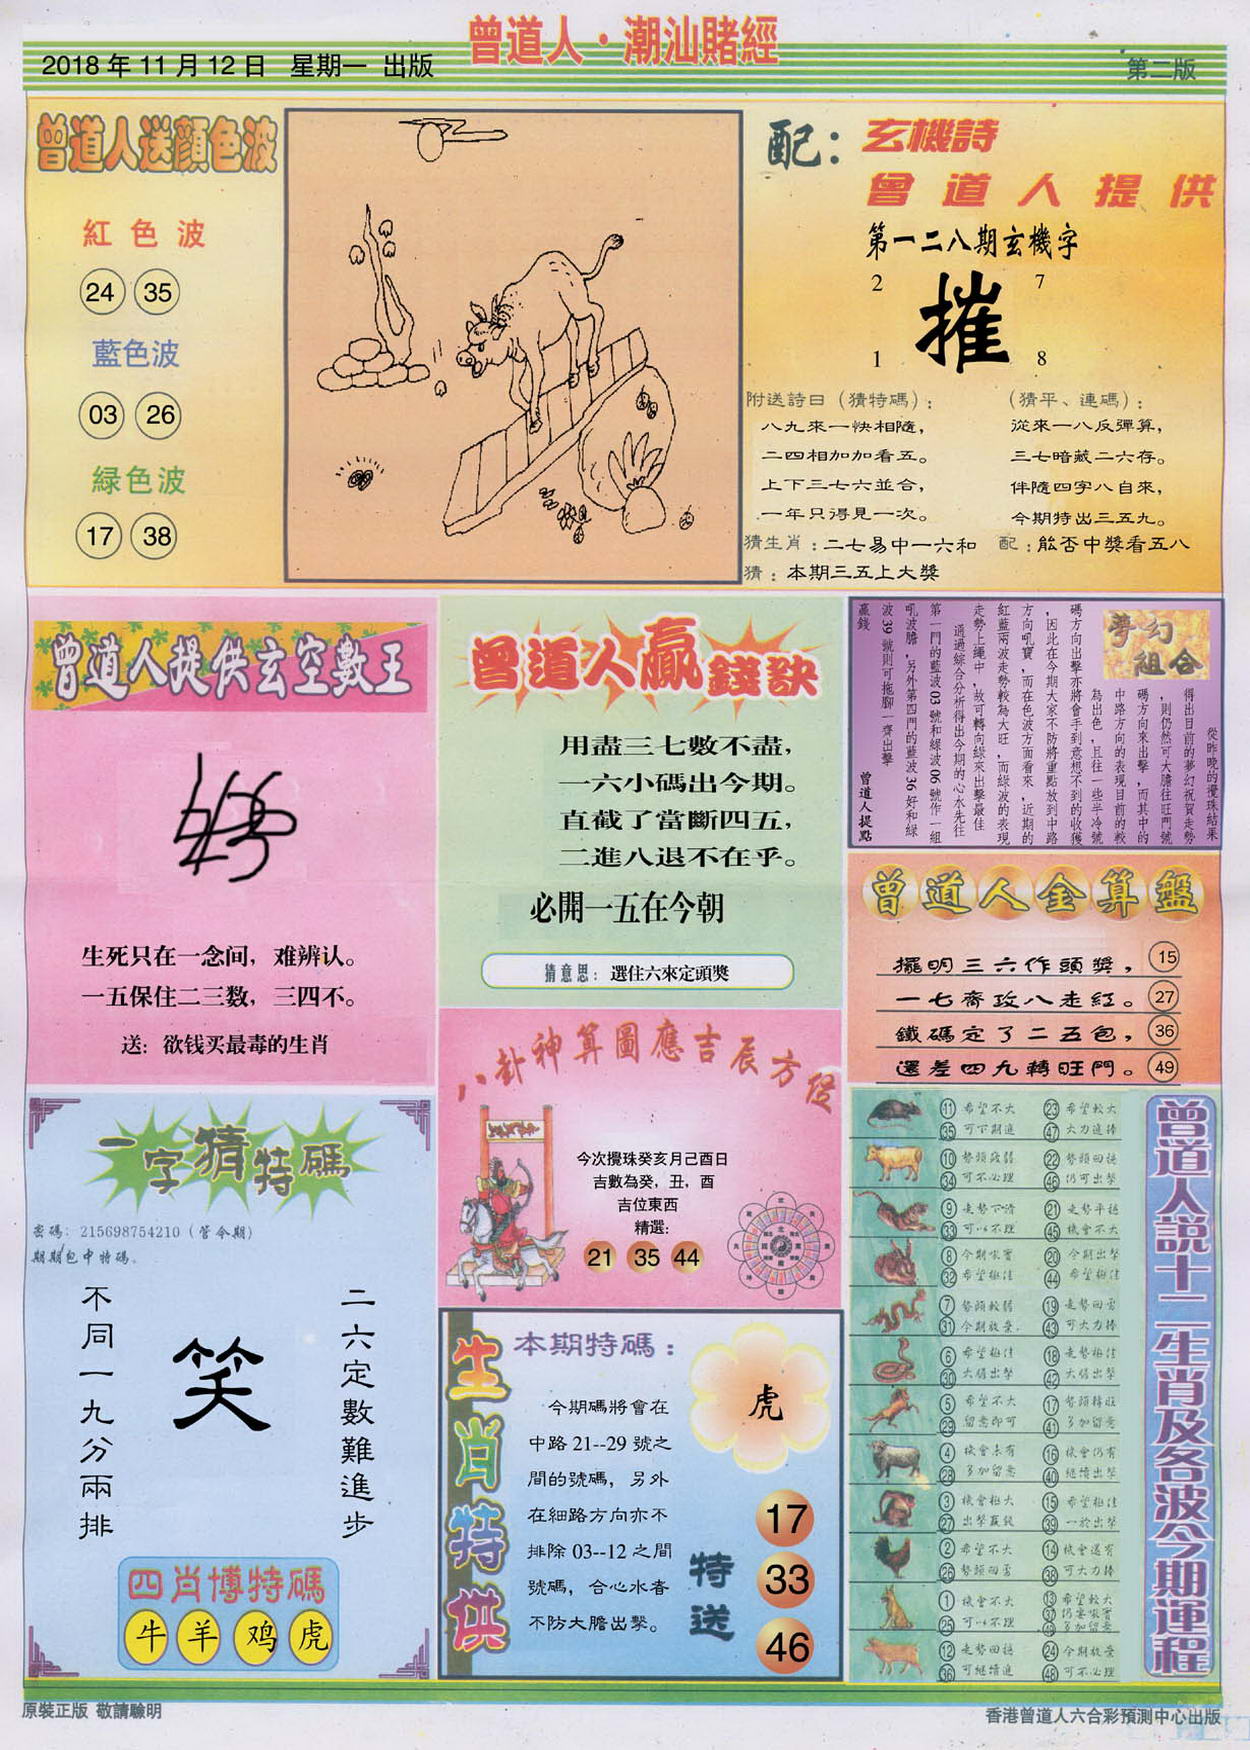 曾道人·潮汕賭經
2018年11月12日 星期一 出版
第二版
曾道人送顏色波
紅色波
24 35
藍色波
03 26
緑色波
17 38
配：
玄機詩
曾道人提供
第一二八期玄機字
2 7
摧
1 8
附送詩日（猜特碼）：
八九來一快相隨，
二四相加加看五。
上下三七六並合，
一年只得見一次。
（猜平、連碼）：
從來一八反彈算，
三七暗藏二六存。
伴隨四字八自來，
今期特出三五九。
猜生肖：二七易中一六和
配：能否中獎看五八
猜：本期三五上大獎
曾道人提供玄空數王
生死只在一念间，难辨认。
一五保住二三数，三四不。
送：欲钱买最毒的生肖
曾道人贏錢訣
用盡三七數不盡，
一六小碼出今期。
直截了當斷四五，
二進八退不在乎。
必開一五在今朝
猜意思：選住六來定頭獎
夢幻
組合
從昨晚的攪珠結果
得出目前的夢幻祝賀走勢
，則仍然可大膽往旺門號
碼方向來出擊，而其中的
中路方向的表現目前的較
為出色，且往一些半冷號
碼方向出擊亦將會手到意想不到的收獲
，因此在今期大家不防將重點放到中路
方向吼寶，而在色波方面看來，近期的
紅藍兩波走勢較為大旺，而綠波的表現
走勢上繩中，故可轉向綠來出擊最佳
通過綜合分析得出今期的心水先往
第一門的藍波03號和綠波06號作一組
吼波膽，另外第四門的藍波36好和綠
波39號則可拖腳一齊出擊
贏錢
曾道人提點
曾道人金算盤
擺明三六作頭獎， 15
一七齊攻八走紅。 27
鐵碼定了二五包， 36
還差四九轉旺門。 49
八卦神算圖應吉辰方位
今次攪珠癸亥月己酉日
吉數為癸，丑，酉
吉位東西
精選：
21 35 44
一字猜特碼
密碼：215698754210（管令期）
期期包中特碼。
二六定數難進步
笑
不同一九分兩排
四肖博特碼
牛 羊 鸡 虎
生肖特供
本期特碼：
虎
今期碼將會在
中路21--29號之
間的號碼，另外
在細路方向亦不
排除03--12之間
號碼，合心水者
不防大膽出擊。
特送
17
33
46
曾道人説十二生肖及各波今期運程
11 希望不大 23 希望較大
35 可下期進 47 大力進捧
10 勢頭疲弱 22 勢頭回穩
34 可不必理 46 仍可出擊
9 走勢下滑 21 走勢平穩
33 可以不理 45 機會不大
8 今期吼寶 20 今期出擊
32 希望極佳 44 希望極佳
7 勢頭較弱 19 走勢回勇
31 今期放棄 43 可大力捧
6 希望極佳 18 走勢極佳
30 大膽出擊 42 大膽出擊
5 希望不大 17 勢頭轉旺
29 留意即可 41 多加留意
4 機會未有 16 機會仍有
28 多加留意 40 繼續出擊
3 機會極大 15 希望極佳
27 出擊贏錢 39 一於出擊
2 希望不大 14 機會還有
26 勢頭回勇 38 可大力捧
1 機會不大 13 希望較大
25 可以不理 37 仍客吼寶
49 多加留意
12 走勢回穩 24 今期放棄
36 可繼續進 48 可不必理
原裝正版 敬請驗明
香港曾道人六合彩預測中心出版